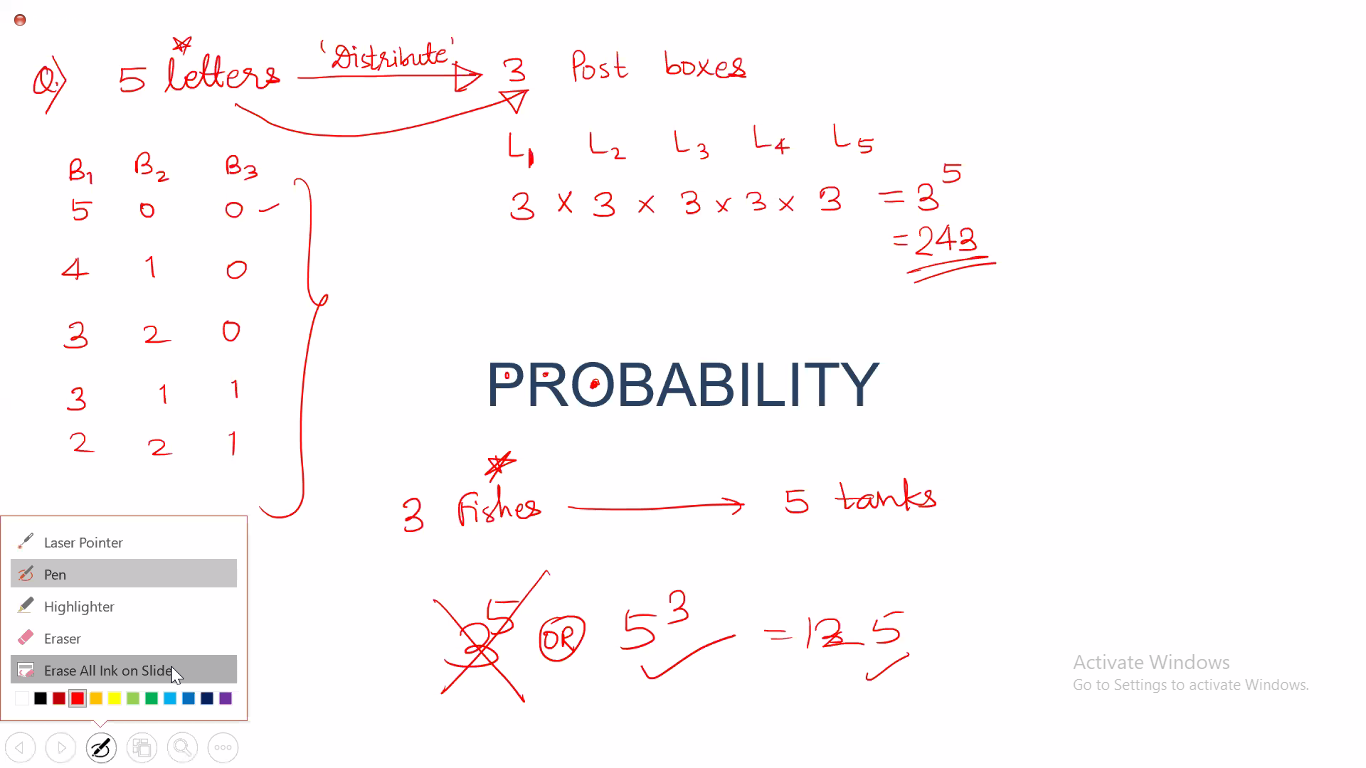 Q.) 5 letters 'Distribute' 3 Post boxes
L1 L2 L3 L4 L5
3 × 3 × 3 × 3 × 3 = 3^5
= 243
B1 B2 B3
5 0 0
4 1 0
3 2 0
3 1 1
2 2 1
PROBABILITY
3 Fishes 5 tanks
3^5 OR 5^3 = 125
Laser Pointer
Pen
Highlighter
Eraser
Erase All Ink on Slide
Activate Windows
Go to Settings to activate Windows.